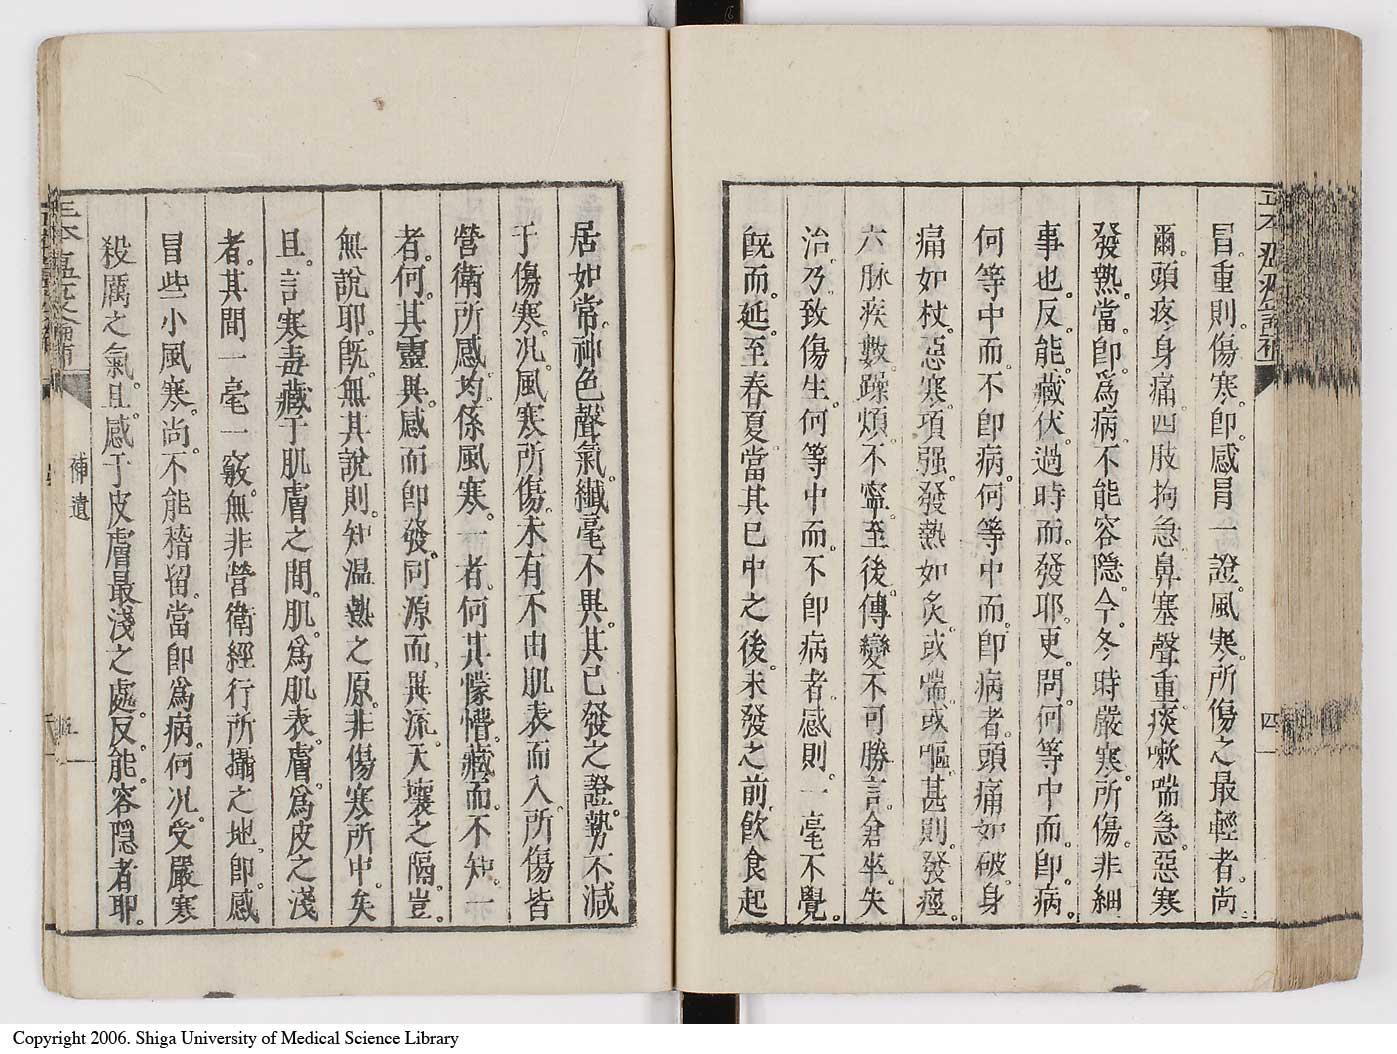 冒。重則傷寒。卽感冒一證。風寒所傷之最輕者。尚
爾。頭疼身痛。四肢拘急。鼻塞聲重。痰嗽喘急。惡寒
發熱。當卽爲病。不能容隱。今冬時嚴寒所傷。非細
事也。反能藏伏。過時而發耶。更問。何等中而卽病。
何等中而不卽病。何等中而卽病者。頭痛如破。身
痛如杖。惡寒項强。發熱如炙。或喘或嘔。甚則發痙。
六脉疾數。躁煩不寧。至後傳變。不可勝言。倉卒失
治。乃致傷生。何等中而不卽病者。感則一毫不覺。
旣而延至春夏。當其已中之後。未發之前。飲食起
四
居如常。神色聲氣。纖毫不異。其已發之證。勢不減
于傷寒。况風寒所傷。未有不由肌表而入。所傷皆
營衛。所感均係風寒。一者何其懞懵。藏而不知。一
者何其靈異。感而卽發。同源而異流。天壤之隔。豈
無說耶。旣無其說。則知温熱之原。非傷寒所中矣。
且言寒毒藏于肌膚之間。肌爲肌表。膚爲皮之淺
者。其間一毫一竅。無非營衛經行所攝之地。卽感
冒些小風寒。尚不能稽留。當卽爲病。何况受嚴寒
殺厲之氣。且感于皮膚最淺之處。反能容隱者耶。
補遺
五
Copyright 2006. Shiga University of Medical Science Library